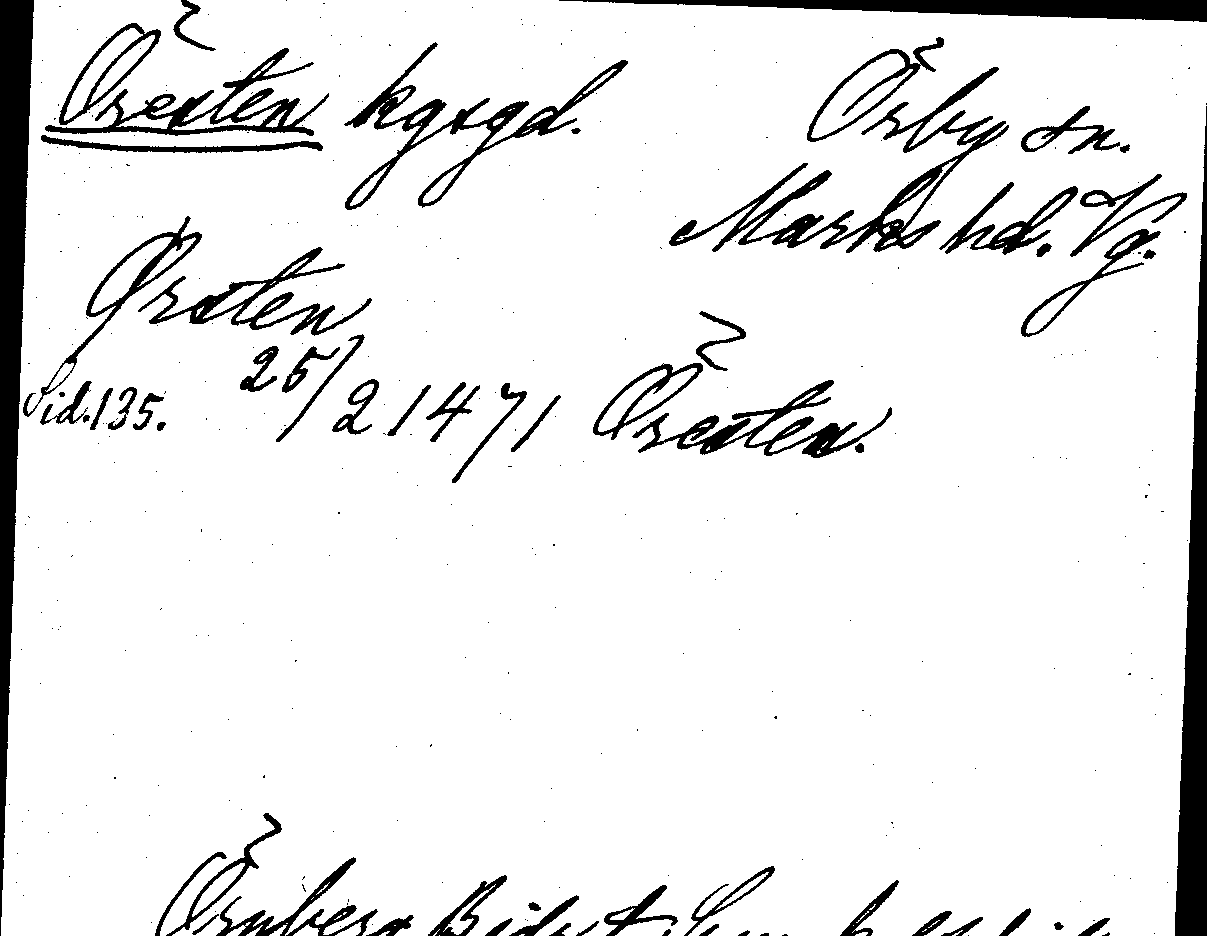 Öresten kgsgd.
Örby sn.
Marks hd. Vg.
Ørsten
Sid. 135. 25/2 1471 Öresten.
Örnberg Bidr t